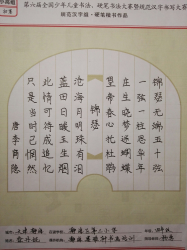 第六届全国少年儿童书法、硬笔书法大赛暨规范汉字书写大赛
规范汉字组·硬笔楷书作品
锦瑟无端五十弦
一弦一柱思华年
庄生晓梦迷蝴蝶
望帝春心托杜鹃
锦瑟
沧海月明珠有泪
蓝田日暖玉生烟
此情可待成追忆
只是当时已惘然
唐李商隐